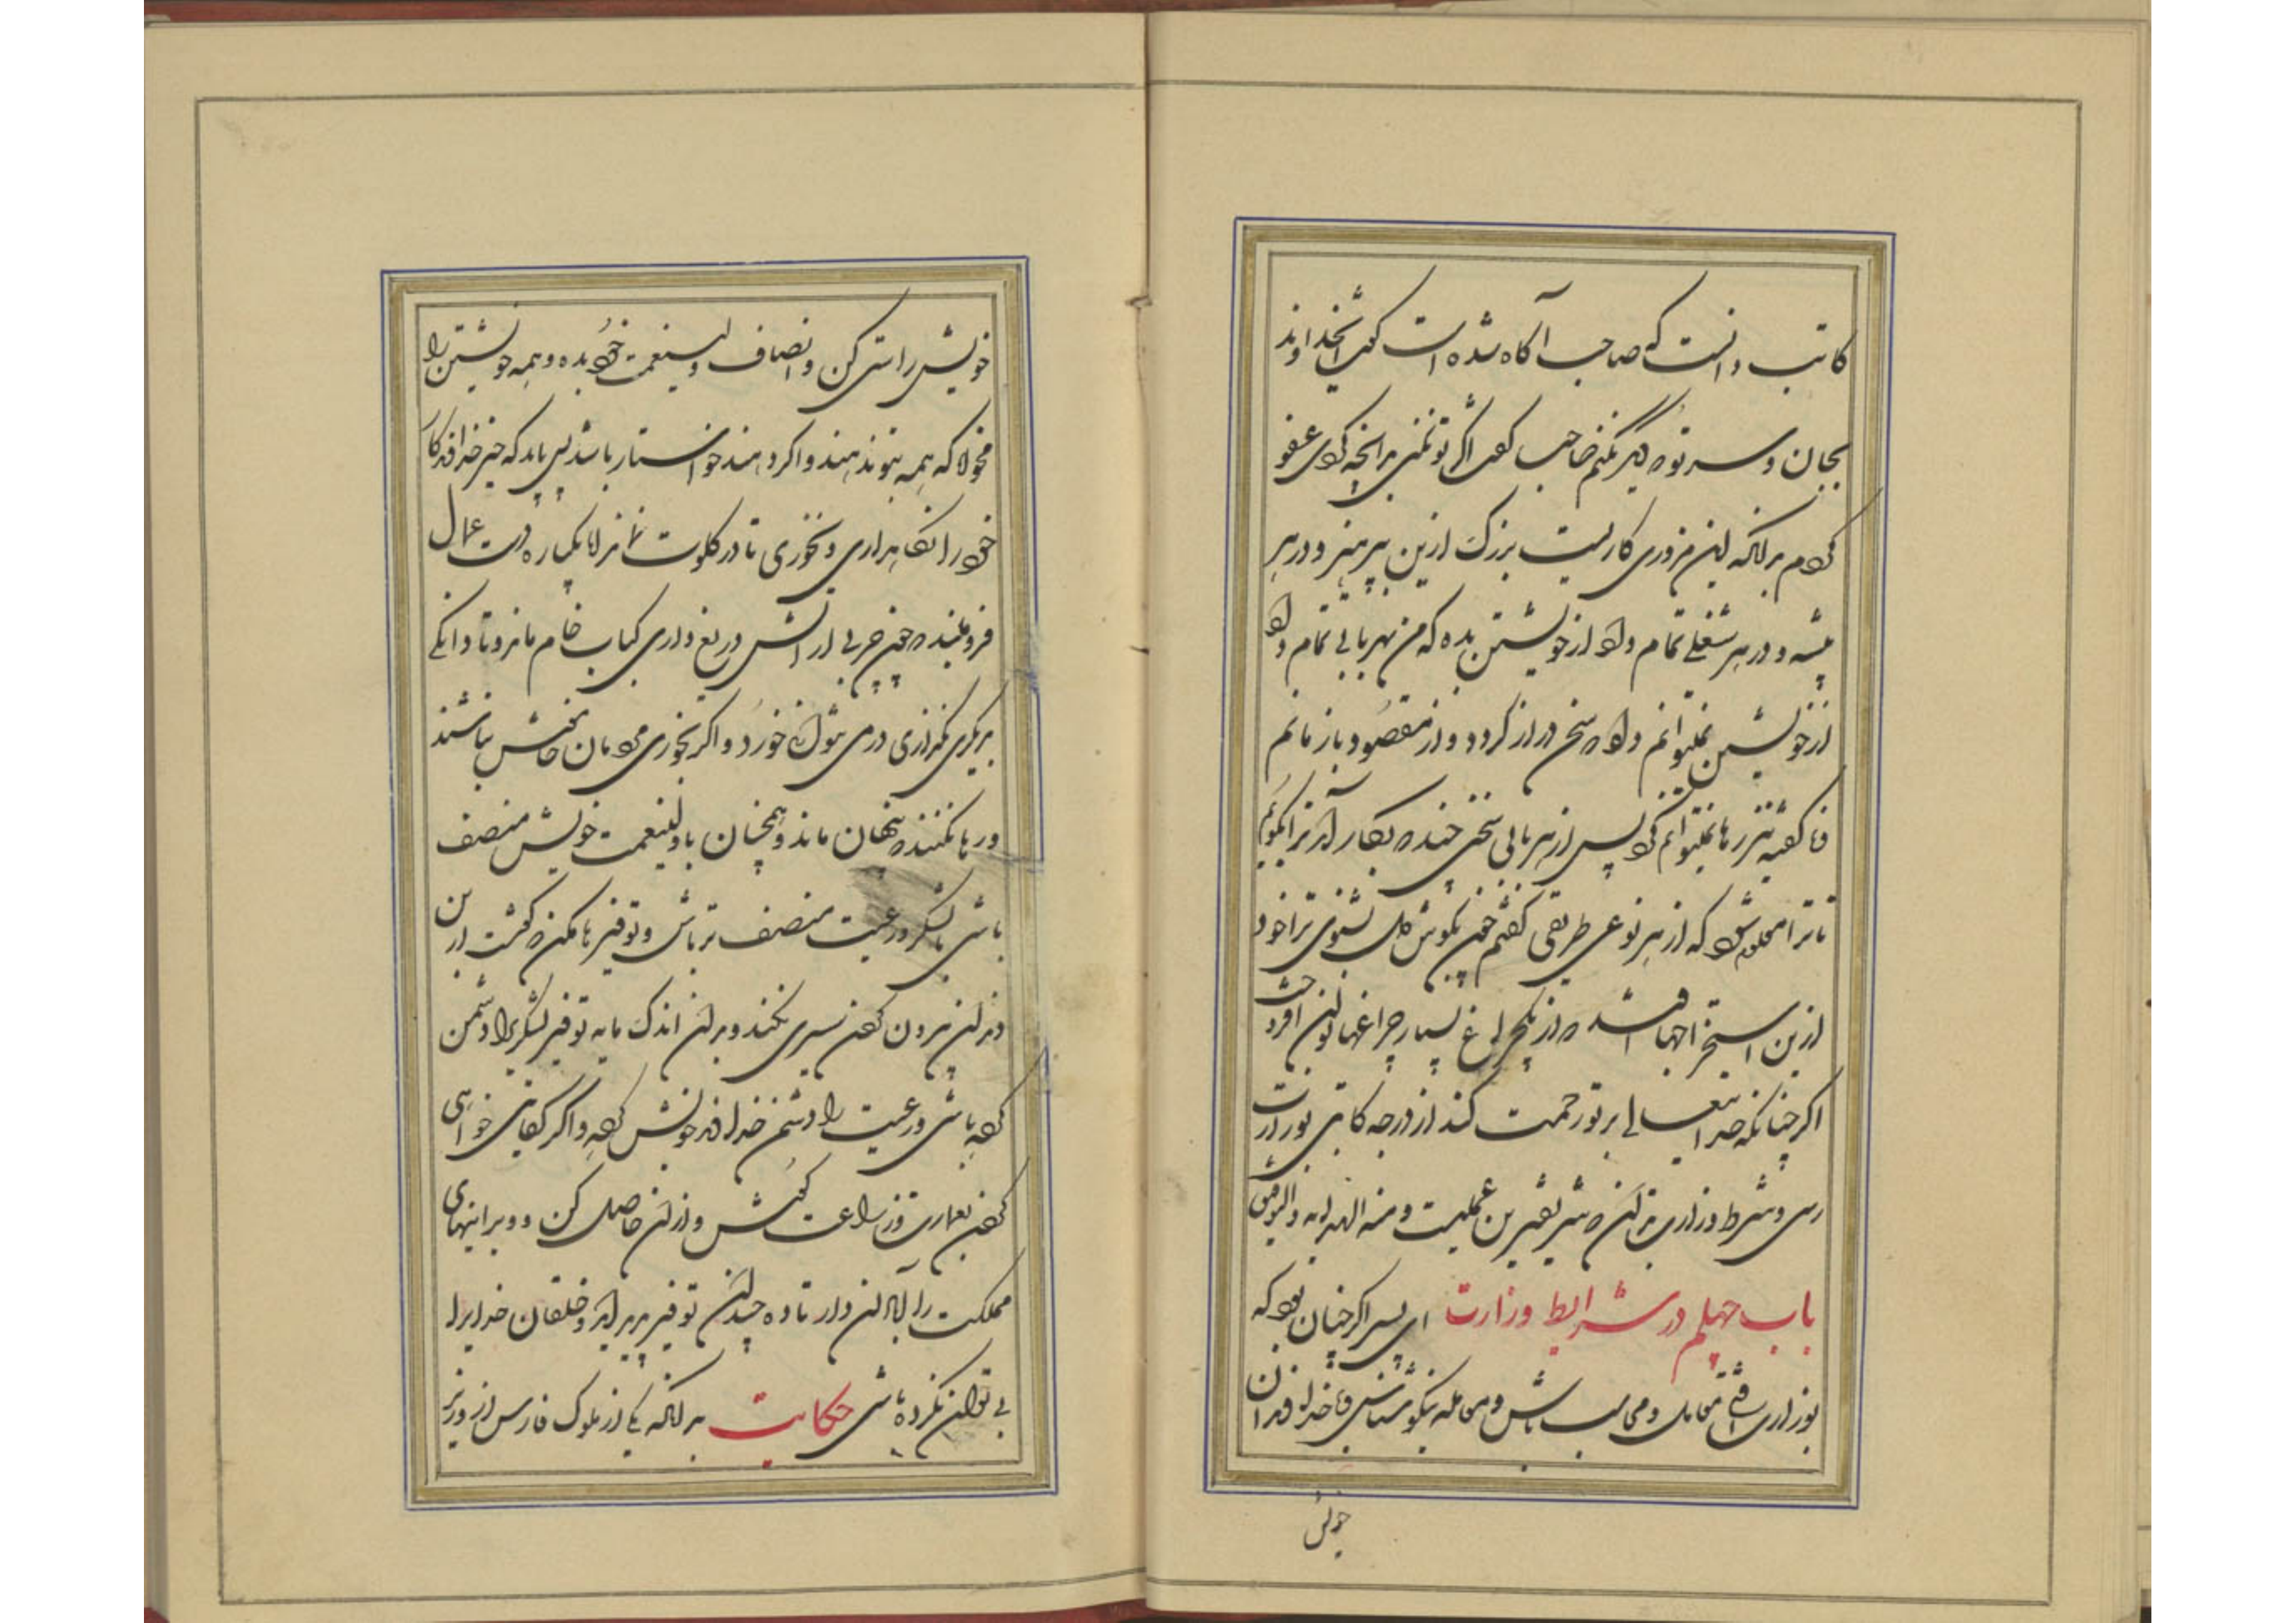 کاتب دانست که صاحب آگاه شده است گفت ای خداوند
بجان و سر تو که دیگر نکنم صاحب گفت اگر تو نکنی بر آنچه کردی عفو
کردم بدانکه این مزوری کاریست بزرگ ازین بپرهیز و در هر
پیشه و در هر شغلی تمام داد از خویشتن بده که من بهر بابی تمام داد
از خویشتن نمیتوانم داد که سخن دراز گردد و از مقصود باز مانم
نا گفته نیز رها نمیتوانم کرد پس از هر بابی سخنی چند که بکار آید ترا بگویم
تا ترا معلوم شود که از هر نوعی طریقی گفتم چون بگوش دل بشنوی ترا خود
ازین استخراجها افتد که از یک چراغ بسیار چراغها توان افروخت
اگر چنانکه خدایتعالی بر تو رحمت کند از درجه کاتبی بوزارت
رسی و شرط وزارت بدان که شریفترین عملیست و منه الهدایه والتوفیق
باب چهلم در شرایط وزارت ای پسر اگر چنان بود که
بوزارت افتی محاسب باش و معامله نیکو شناس و با خداوند
خویش
خویش راستی کن و انصاف ولینعمت خود بده و همه خویشتن را
مخواه که همه بتو ندهند و اگر دهند خواستار باشد پس باید که چیز خداوندگار
خود را نگاهداری و بخوری تا در گلوت نماند اما یکباره دست عمال
فرو مبند که چون چربی از آتش دریغ داری کباب خام ماند و تا دانگی
بدیگری نگذاری درمی نتوانی خورد و اگر بخوری محرومان خامش نباشند
و رها نکنند که پنهان ماند و همچنان با ولینعمت خویش منصف
باشی با لشکر و رعیت منصف تر باش و توفیرها مکن که گشت از بن
دندان بیرون کردن سیری نکند و بدان اندک مایه توفیر لشکر را دشمن
کرده باشی و رعیت را دشمن خداوند خویش کرده و اگر کفایتی خواهی
کردن بعمارت و زراعت کوش و از آن حاصل کن و ویرانیهای
مملکت را آبادان دار تا ده چندان توفیر پدید آید و خلقان خدایرا
بی توان نکرده باشی حکایت بدانکه یکی از ملوک فارس از وزیر